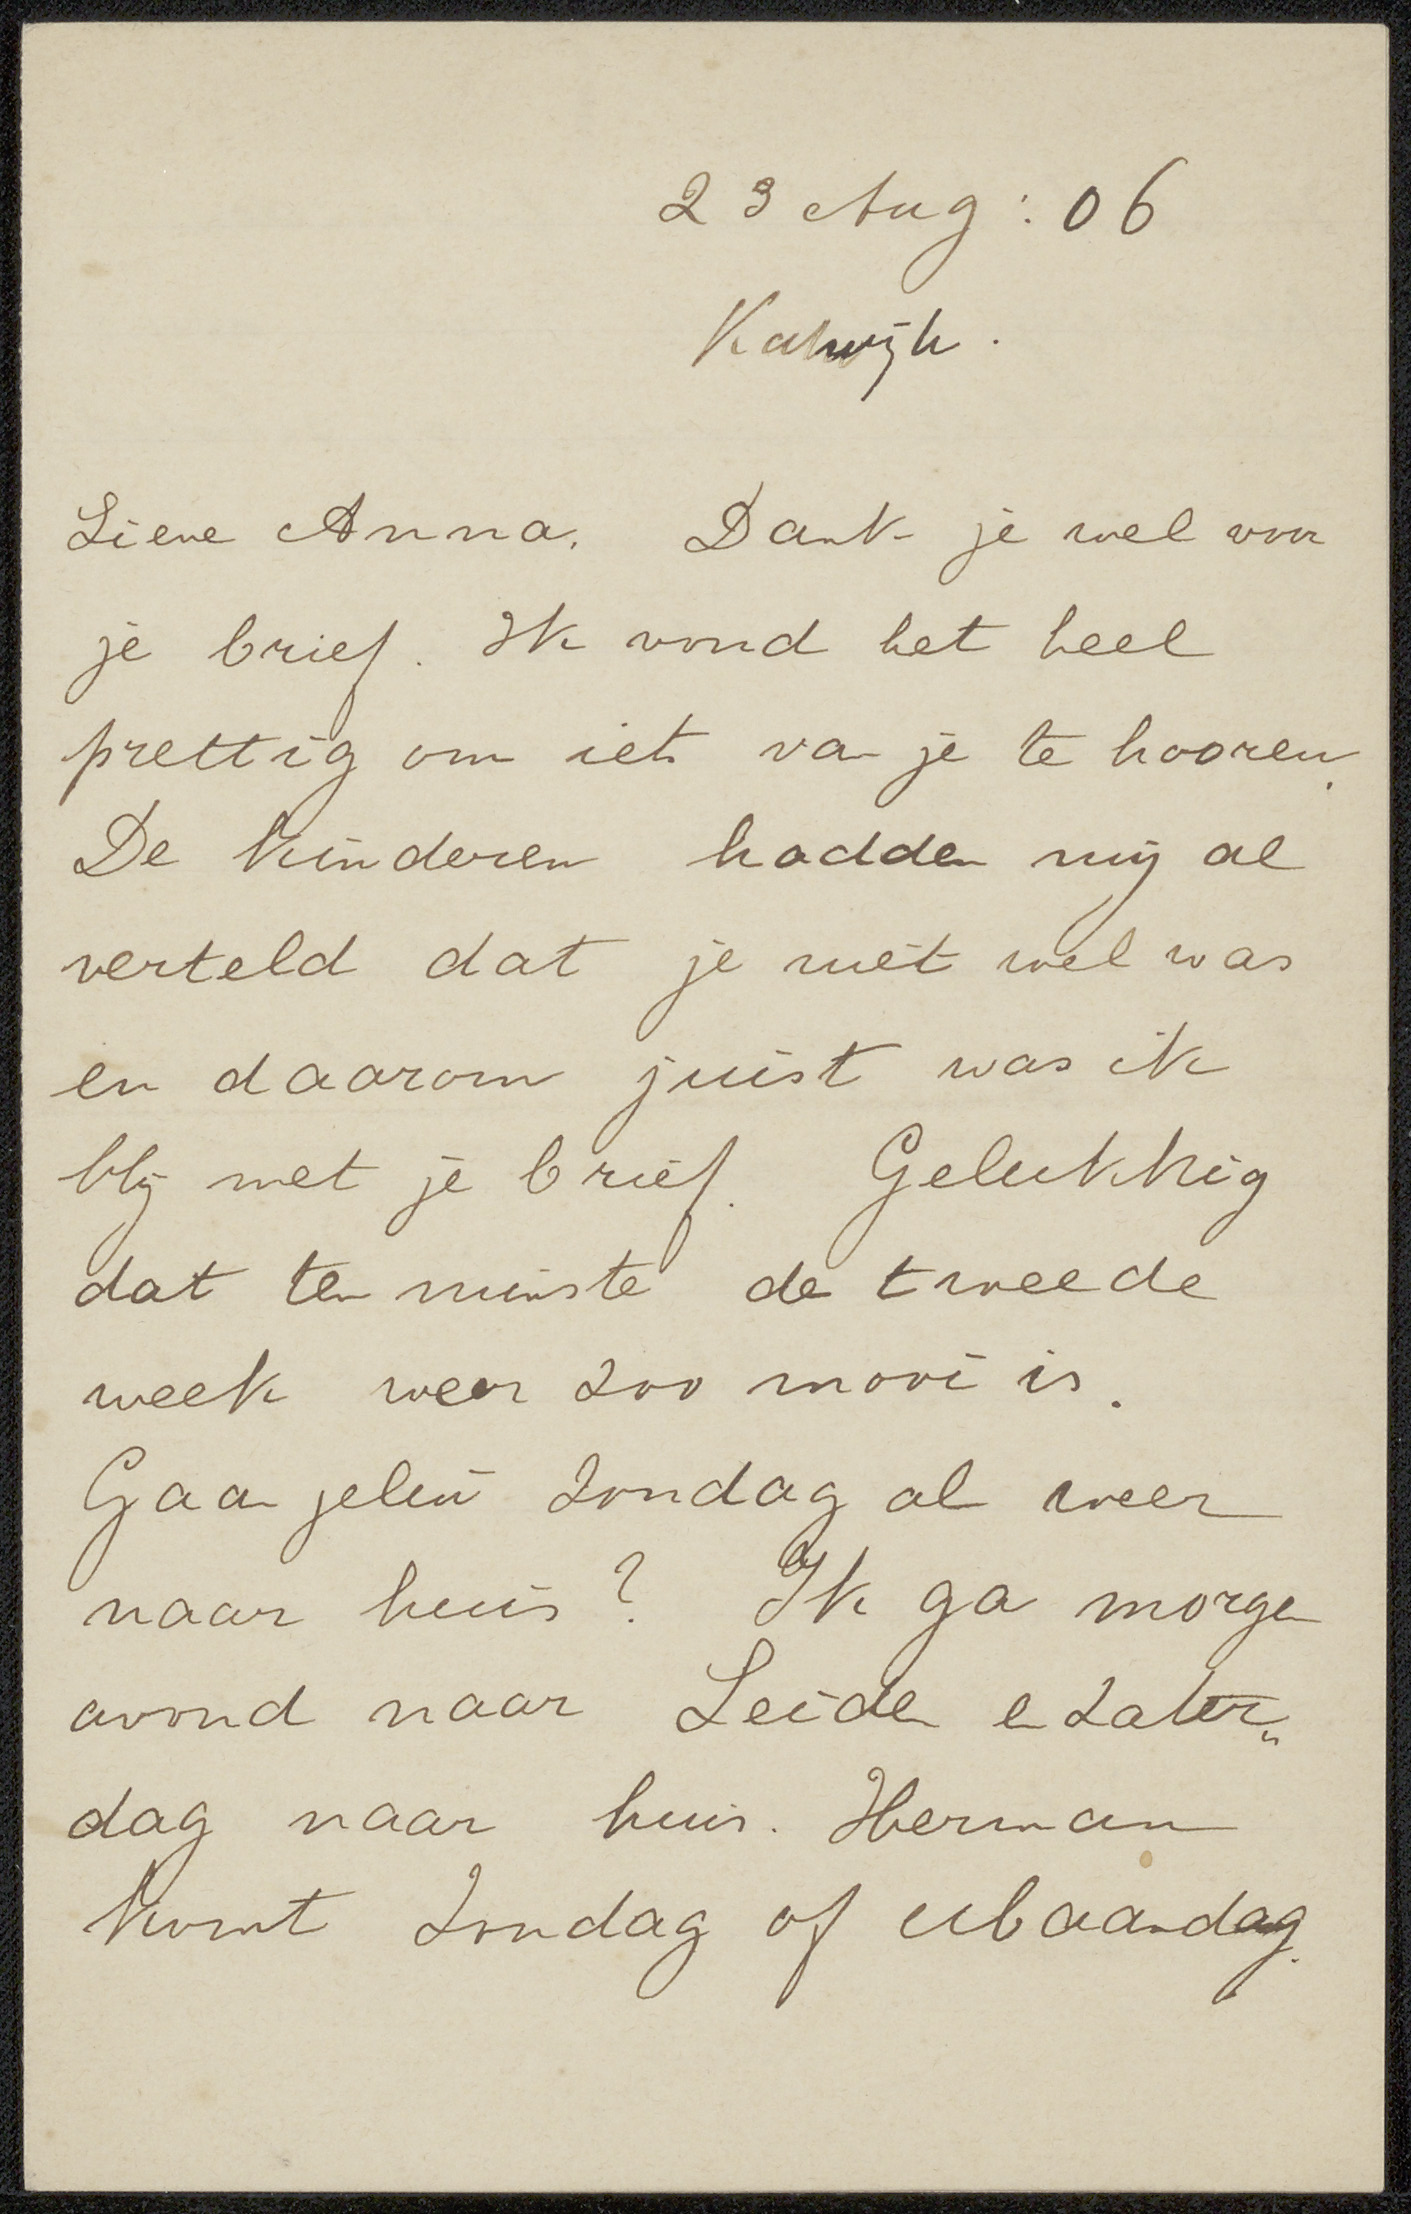 23 Aug: 06
Katwijk.
Lieve Anna. Dank je wel voor
je brief. Ik vond het heel
prettig om iets van je te hooren.
De kinderen hadden mij al
verteld dat je niet wel was
en daarom juist was ik
blij met je brief. Gelukkig
dat ten minste de tweede
week weer zoo mooi is.
Gaan jelui Zondag al weer
naar huis? Ik ga morgen
avond naar Leiden en Zater„
dag naar huis. Herman
komt Zondag of Maandag.